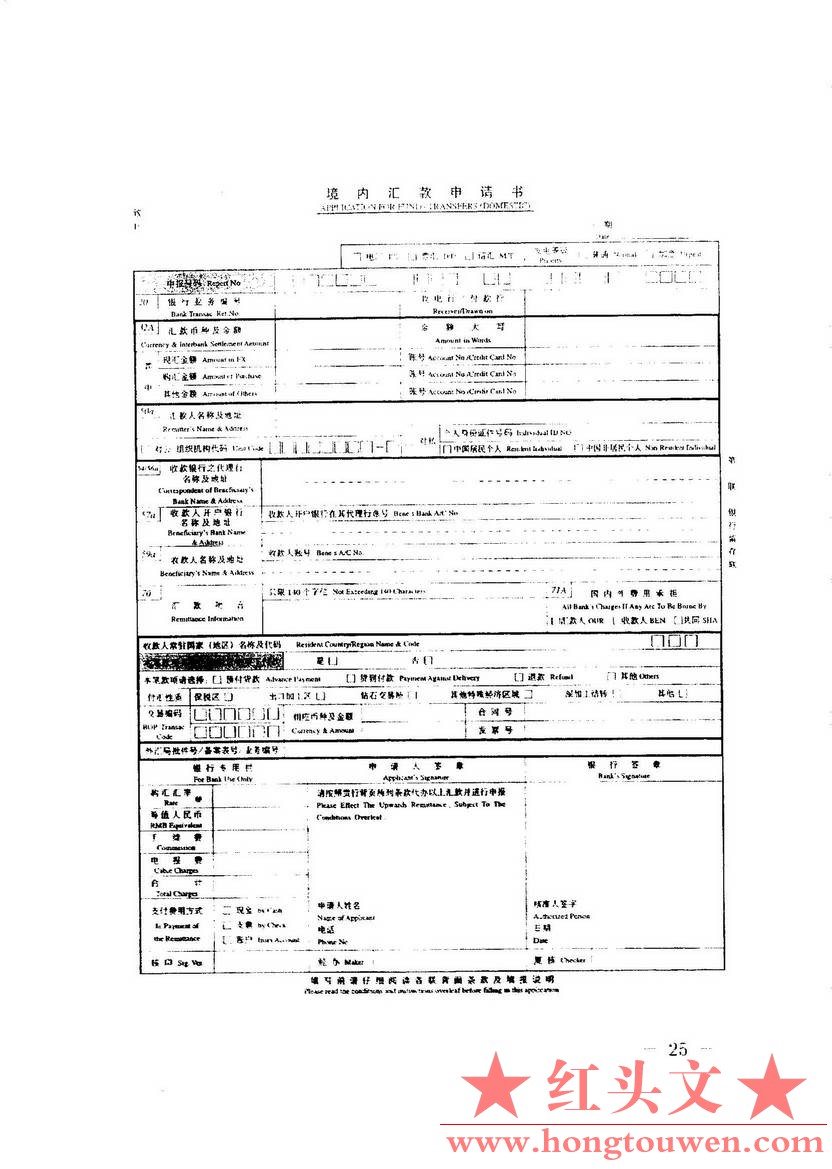 境内汇款申请书
APPLICATION FOR FUND TRANSFERS (DOMESTIC)
期
Date
电汇 票汇 D/D 信汇 M/T 发电等级 Priority 普通 Normal 加急 Urgent
申报号码 Report No
20 银行业务编号
Bank Transac. Ref.No
收电行/付款行
Receiver/Drawn on
32A 汇款币种及金额
Currency & Interbank Settlement Amount
金额大写
Amount in Words
其中
现汇金额 Amount in FX
账号 Account No./Credit Card No
购汇金额 Amount of Purchase
账号 Account No./Credit Card No
其他金额 Amount of Others
账号 Account No./Credit Card No
50a 汇款人名称及地址
Remitter's Name & Address
对公 组织机构代码 Unit Code
对私
个人身份证件号码 Individual ID NO
中国居民个人 Resident Individual 中国非居民个人 Non Resident Individual
54/56a 收款银行之代理行
名称及地址
Correspondent of Beneficiary's
Bank Name & Address
57a 收款人开户银行
名称及地址
Beneficiary's Bank Name
& Address
收款人开户银行在其代理行账号 Bene's Bank A/C No
59a 收款人名称及地址
Beneficiary's Name & Address
收款人账号 Bene's A/C No
70 汇款附言
Remittance Information
只限140个字位 Not Exceeding 140 Characters
71A 国内外费用承担
All Bank's Charges If Any Are To Be Borne By
汇款人 OUR 收款人 BEN 共同 SHA
第
联
银
行
留
存
联
收款人常驻国家（地区）名称及代码 Resident Country/Region Name & Code
是 否
本笔款项请选择: 预付货款 Advance Payment 货到付款 Payment Against Delivery 退款 Refund 其他 Others
付汇性质 保税区 出口加工区 钻石交易所 其他特殊经济区域 深加工结转 其他
交易编码
BOP Transac
Code
相应币种及金额
Currency & Amount
合同号
发票号
外汇局批件号/备案表号/业务编号
银行专用栏
For Bank Use Only
申请人签章
Applicant's Signature
银行签章
Bank's Signature
购汇汇率
Rate
等值人民币
RMB Equivalent
手续费
Commission
电报费
Cable Charges
合计
Total Charges
请按照贵行背页所列条款代办以上汇款并进行申报
Please Effect The Upwards Remittance, Subject To The
Conditions Overleaf
支付费用方式
In Payment of
the Remittance
现金 by Cash
支票 by Check
账户 from Account
申请人姓名
Name of Applicant
电话
Phone No
核准人签字
Authorized Person
日期
Date
核印 Sig. Ver
经办 Maker
复核 Checker
填写前请仔细阅读各联背面条款及填报说明
Please read the conditions and instructions overleaf before filling in this application
— 25 —
红头文
www.hongtouwen.com